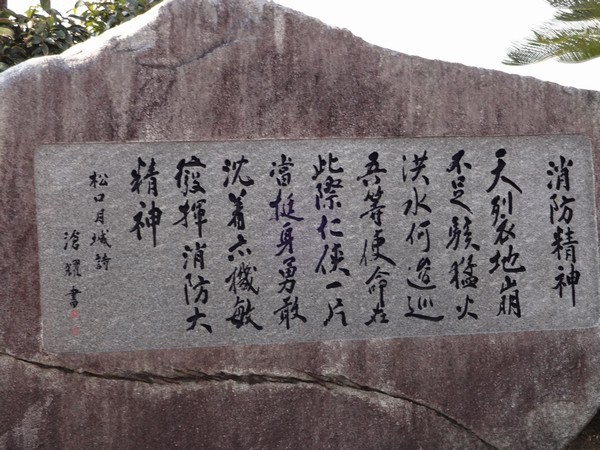 消防精神
天裂地崩
不足駭猛火
洪水何逡巡
吾等使命在
此際仁侠一片
當挺身勇敢
沈着亦機敏
發揮消防大
精神
松口月城詩
滄耀書